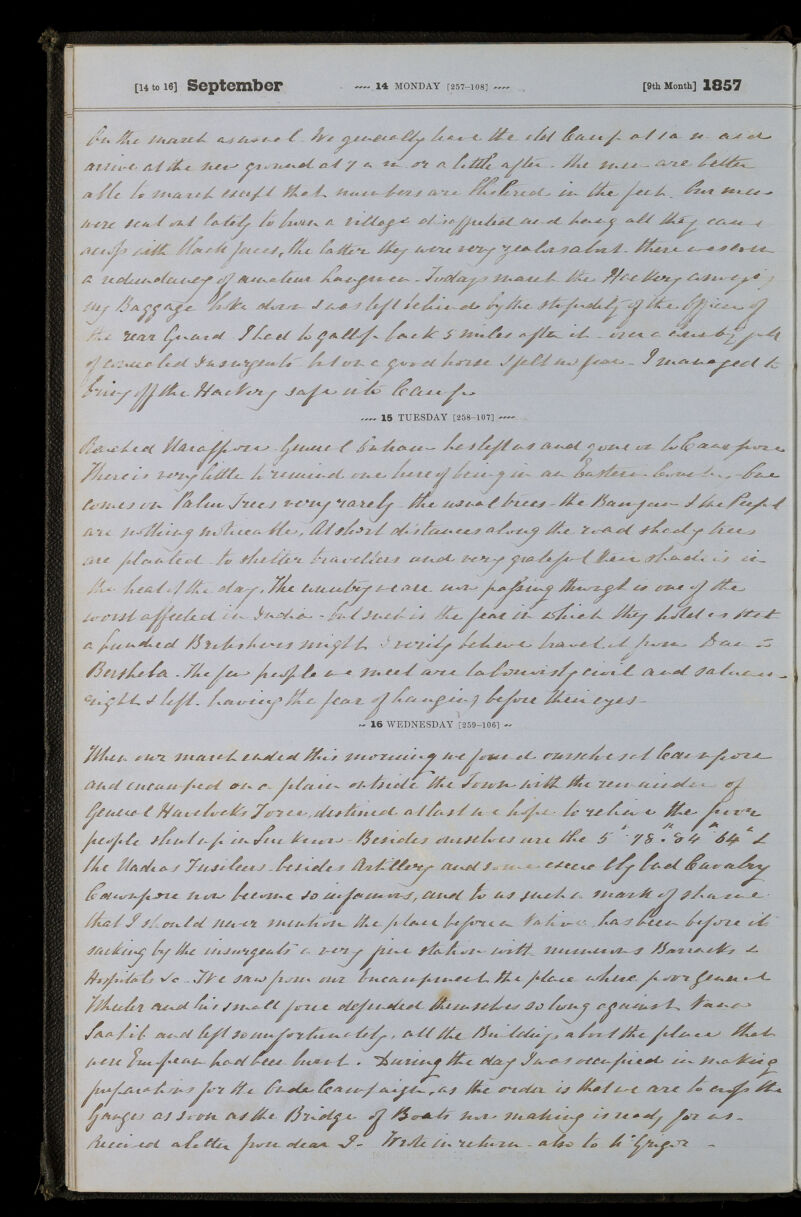 [14 to 16] September ---- 14 MONDAY [257-108] ---- [9th Month] 1857
On the march as usual. We generally leave the old Camp at 1 a m and
arrive at the new ground at 7 a m or a little after. the men are better
able to march except that numbers are blistered in the feet. Our men
were sent out lately to burn a village disaffected and hang all they came
across with black faces, the latter they were very zealous about. there was even
a redundancy of amateur hangmen. Today's march the Hackery carrying
my Baggage broke down & was left behind by the stupidity of the Officer of
the rear Guard I had to gallop back 5 miles after it - over a country full
of Insurgents but on a good horse I felt no fear - I managed to
bring off the Hackery safe into Camp
---- 15 TUESDAY [258-107] ----
Reached General Outram has left us and gone on to Cawnpore
There is very little to remind one here of being in an Eastern Country. One
comes on Palm Trees very rarely - the usual trees - the Banyan & the Peepul
are nothing noticeable. At short distances along the road shady trees
are planted to shelter travellers and very grateful their shade is in
the heat of the day. The country we are now passing through is one of the
worst affected in India - but such is the fear in which they hold us that
a hundred Britishers might I verily believe travel it from Dan =
Bersheba. The few people we meet are laboriously civil and salaam
right & left. having the fear of hanging before their eyes -
-- 16 WEDNESDAY [259-106] --
When our march ended this morning we found ourselves at Cawnpore
and encamped on a plain outside the Town with the remainder of
General Havelocks Force, destined at last we hope to relieve the poor
people shut up in Lucknow - Besides ourselves are the 5" 78" 84" 64" &
the Madras Fusileers besides Artillery and some bad Cavalry
Cawnpore now become so infamous, and to us such a mark of shame
that I should never mention the place before a Native, has been before its
sacking by the insurgents a very fine station with numerous Barracks &
Hospitals &c - We saw from our Encampment the place where poor General
Wheeler and his small force defended themselves so long against Nana
Saahib and left so unfortunately, all the Buildings about the place that
were European had been burnt. During the day I was occupied in making
preparations for the Oude Campaign, as the order is that we are to cross the
Ganges as soon as the Bridge of Boats now making is ready for us -
Received a letter from dear I- Wrote in return - also to McGrigor -